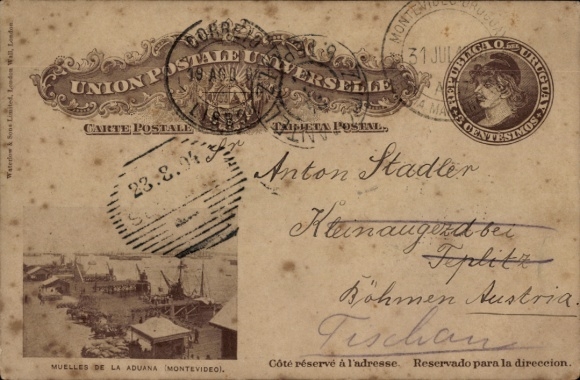 Waterlow & Sons Limited, London Wall, London.
UNION POSTALE UNIVERSELLE
CARTE POSTALE TARJETA POSTAL.
REPUBLICA O. DEL URUGUAY
CENTESIMOS
MONTEVIDEO
31 JUL
CORREIO
LISBOA
23.8.04
Sr
Anton Stadler
Kleinaugezd bei
Teplitz
Böhmen Austria.
Tischau
MUELLES DE LA ADUANA (MONTEVIDEO).
Côté réservé à l'adresse. Reservado para la direccion.